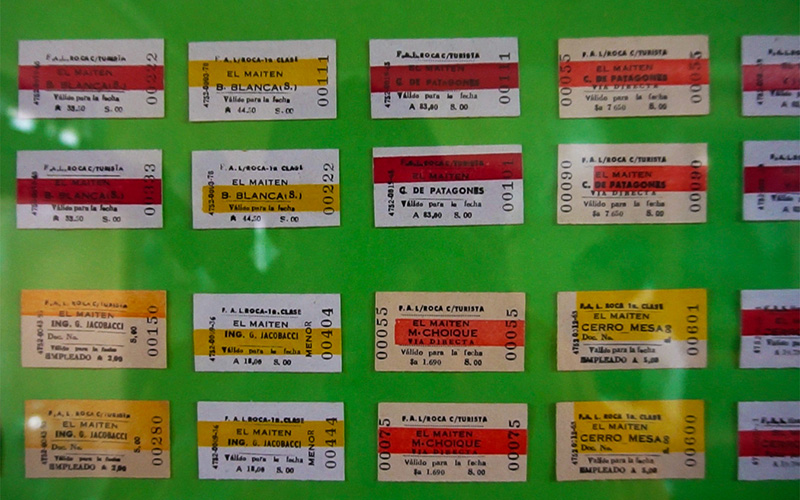 F.A.L. ROCA C/TURISTA
EL MAITEN
B. BLANCA (S.)
Válido para la fecha
A 33,50 S.00
00222
F. A. L/ROCA-1a. CLASE
EL MAITEN
B. BLANCA (S.)
Válido para la fecha
A 44,50 S. 00
00111
F.A.L. ROCA C/TURISTA
EL MAITEN
C. DE PATAGONES
Válido para la fecha
A 63,00 S. 00
00111
F.A. L/ROCA C/TURISTA
EL MAITEN
C. DE PATAGONES
VIA DIRECTA
Válido para la fecha
$a 7.650 S. 00
00055
F.A.L. ROCA C/TURISTA
EL MAITEN
B. BLANCA (S.)
Válido para la fecha
A 33,50 S. 00
F. A. L/ROCA-1a CLASE
EL MAITEN
B. BLANCA (S.)
Válido para la fecha
A 44,50 S. 00
00222
EL MAITEN
C. DE PATAGONES
Válido para la fecha
A 63,00 S. 00
00101
F.A. L/ROCA C/TURISTA
EL MAITEN
C. DE PATAGONES
VIA DIRECTA
Válido para la fecha
$a 7.650 S. 00
00090
00090
F. A. L. ROCA C/TURISTA
EL MAITEN
ING. G. JACOBACCI
Doc. No.
Válido para la fecha
EMPLEADO A 2,00
S. 00
00150
F. A. L/ROCA-1a. CLASE
EL MAITEN
ING. G. JACOBACCI
Válido para la fecha
A 18,00 S. 00
MENOR
00404
F.A. L/ROCA C/TURISTA
EL MAITEN
M. CHOIQUE
VIA DIRECTA
Válido para la fecha
$a 1.690 S. 00
00055
00055
F.A. L. ROCA 1a. CLASE
EL MAITEN
CERRO MESA
Doc. No.
Válido para la fecha
EMPLEADO A 5,00
00601
F. A. L. ROCA C/TURISTA
EL MAITEN
ING. G. JACOBACCI
Doc. No.
Válido para la fecha
EMPLEADO A 2,00
S. 00
00280
F. A. L/ROCA-1a. CLASE
EL MAITEN
ING. G. JACOBACCI
Válido para la fecha
A 18,00 S. 00
MENOR
00444
F.A. L/ROCA C/TURISTA
EL MAITEN
M. CHOIQUE
VIA DIRECTA
Válido para la fecha
$a 1.690 S. 00
00075
00075
F.A. L. ROCA 1a. CLASE
EL MAITEN
CERRO MESA
Doc. No.
Válido para la fecha
EMPLEADO A 5,00
00600